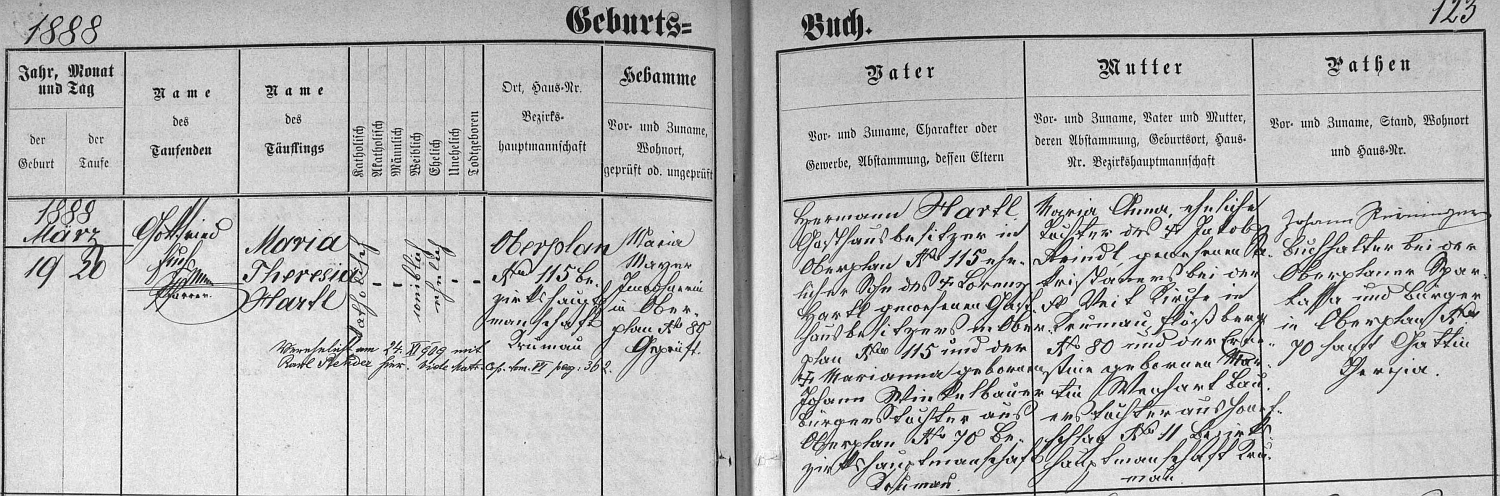 1888
Geburts=
Buch.
123
Jahr, Monat
und Tag
der
Geburt
der
Taufe
Name
des
Taufenden
Name
des
Täuflings
Katholisch
Akatholisch
Männlich
Weiblich
Ehelich
Unehelich
Todtgeboren
Ort, Haus-Nr.
Bezirks-
hauptmannschaft
Hebamme
Vor- und Zuname,
Wohnort,
geprüft od. ungeprüft
Vater
Vor- und Zuname, Charakter oder
Gewerbe, Abstammung, dessen Eltern
Mutter
Vor- und Zuname, Vater und Mutter,
deren Abstammung, Geburtsort, Haus-
Nr. Bezirkshauptmannschaft
Pathen
Vor- und Zuname, Stand, Wohnort
und Haus-Nr.
1888
März
19 26
Gottfried
Pfarrer.
Maria
Theresia
Hartl
katholisch
-
-
weiblich
ehelich
-
-
Oberplan
No 115 Be-
zirkshaupt-
manschaft
Krumau
Maria
Mayer
in Ober-
plan No 80
Geprüft.
Verehelicht am 24. XI 1909 mit
Karl hier. tom. VI pag: 362.
Hermann Hartl
Gasthausbesitzer in
Oberplan No 115 ehe-
licher Sohn des † Lorenz
Hartl gewesenen Gast-
hausbesitzers in Ober-
plan No 115 und der
† Marianna gebornen
Johann Winkelbauer
Bürgerstochter aus
Oberplan No 70 Be-
zirkshauptmanschaft
Krumau.
Maria Anna, eheliche
Tochter des † Jakob
Reindl gewesenen Sa-
kristaners bei der
St Veit Kirche in
Krumau
No 80 und der
gebornen
Bau-
erstochter aus
No 11 Bezirks
hauptmanschaft Kru-
mau.
Johann
Buchhalter bei der
Oberplaner Spar-
kassa und Bürger
in Oberplan No
70 samt Gattin
Theresia.